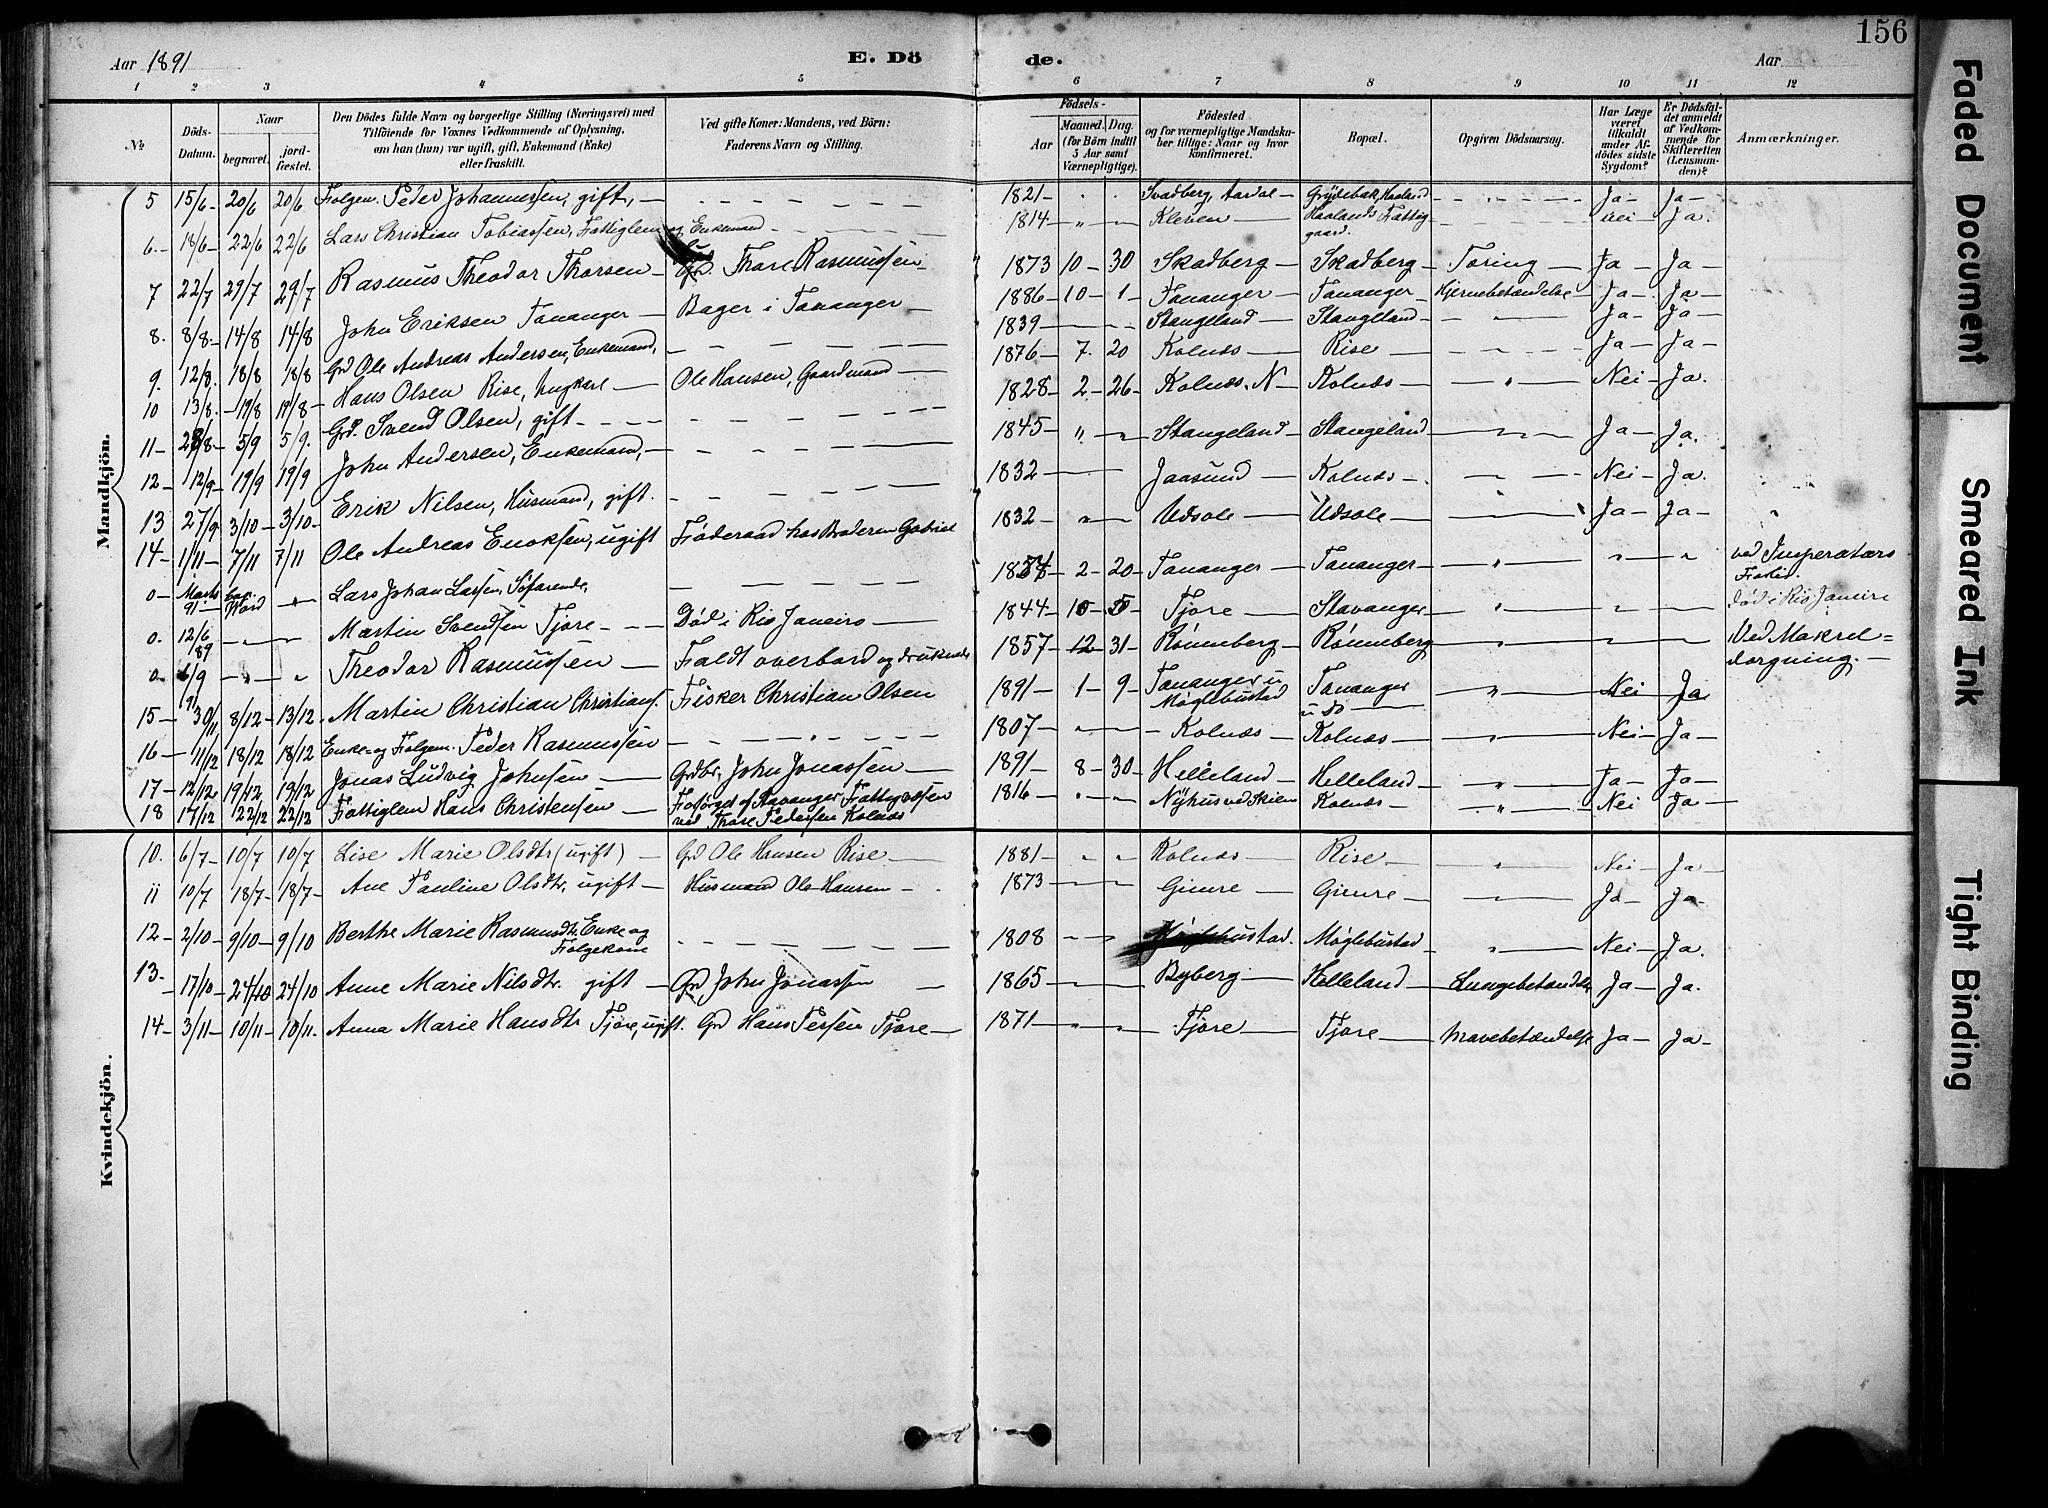 156
Aar 1891
E. Dö de.
Aar
1 2 3 4 5 6 7 8 9 10 11 12
№
Döds-Datum.
Naar begravet. jordfæstet.
Den Dödes fulde Navn og borgerlige Stilling (Næringsvei) med Tilföiende for Voxnes Vedkommende af Oplysning, om han (hun) var ugift, gift, Enkemand (Enke) eller fraskilt.
Ved gifte Koner: Mandens, ved Börn: Faderens Navn og Stilling.
Födsels- Aar Maaned. Dag. (for Börn indtil 5 Aar samt Værnepligtige).
Födested og for værnepligtige Mandskaber tillige: Naar og hvor konfirmeret.
Bopæl.
Opgiven Dödsaarsag.
Har Læge været tilkaldt under Afdödes sidste Sygdom?
Er Dödsfaldet anmeldt af Vedkommende for Skifteretten (Lensmanden)?
Anmærkninger.
Mandkjön.
5 15/6 20/6 20/6 Folgem. Peder Johannessen, gift, 1821 Svadberg, Aardal Grydebak, Haaland Ja Ja
6 18/6 22/6 22/6 Lars Christian Tobiassen, Fattiglem og Enkemand 1814 " Kleven Haalands Fattiggaard. nei Ja.
7 22/7 29/7 29/7 Rasmus Theodor Thorsen Thore Rasmussen 1873 10 30 Skadberg Skadberg Tæring Ja Ja
8. 8/8 14/8 14/8 John Eriksen Tananger Bager i Tananger 1886 10 1 Tananger Tananger Hjernebetændelse Ja Ja
9. 12/8. 18/8 18/8 Grd Ole Andreas Andersen, Enkemand, 1839 Stangeland Stangeland " Ja Ja
10 13/8. 19/8 19/8 Hans Olsen Rise, Ungkarl Ole Hansen, Gaardmand 1876 7. 20 Kolnæs Rise Ja Ja
11 28/8 5/9 5/9. Grd. Svend Olsen, gift 1828 2 26 Kolnæs. N Kolnæs " Nei Ja.
12 12/9 19/9 19/9 John Andersen, Enkemand, 1845 " " Stangeland Stangeland " Ja Ja.
13 27/9 3/10 3/10 Erik Nilsen, Husmand, gift. 1832 Jaasund Kolnæs Nei Ja.
14 1/11 7/11 7/11 Ole Andreas Enoksen, ugift Føderaad hos Broderen Gabriel 1832 " Udsole Udsole " Ja Ja
0 Marts 91 Lars Johan Larsen, Søfarende, 2 20 Tananger Tananger " " " ved Imperators Forlid.
0. 12/6 89 Martin Svendsen Tjore Død i Rio Janeiro 1844 10 5 Tjore Stavanger " død i Rio Janeiro
0 6/9 91 Theodor Rasmussen Faldt overbord og druknede 1857 12 31 Rønneberg Rønneberg " Ved Makreldorgning.
15 30/11 8/12 13/12 Martin Christian Christians. Fisker Christian Olsen 1891 1 9 Tananger u Møglebustad Tananger u do " Nei Ja
16 11/12 18/12 18/12 Enke- og Folgem. Peder Rasmussen " 1807 " Kolnæs Kolnæs " Nei Ja
17 12/12 19/12 19/12 Jonas Ludvig Johnsen Grdbr. John Jonassen 1891 8 30 Helleland Helleland " Ja Ja
18 17/12 22/12 22/12 Fattiglem Hans Christensen Forsørget af Stavanger Fattigvæsen ved Thore Pedersen Kolnæs 1816 " " Nyhus ved Skien Kolnæs " Nei Ja
Kvindekjön.
10. 6/7 10/7 10/7 Lise Marie Olsdtr (ugift) Grd Ole Hansen Rise 1881 " " Kolnæs Rise " Nei Ja
11 10/7 18/7 18/7 Ane Pauline Olsdtr. ugift Husmand Ole Hansen 1873 Gimre Gimre " Ja Ja
12 2/10 9/10 9/10 Berthe Marie Rasmusdtr. Enke og Folgekone 1808 Møglebustad. Møglebustad " Nei Ja.
13. 17/10 24/10 24/10 Anne Marie Nilsdtr. gift Grd John Jonassen 1865 Byberg Helleland Lungebetændelse Ja Ja.
14 3/11 10/11 10/11. Anna Marie Hansdtr Tjore, ugift. Grd Hans Persen Tjore 1871 " " Tjore Tjore Mavebetændelse Ja Ja
Faded Document
Smeared Ink
Tight Binding